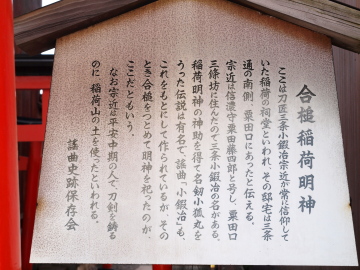 合槌稲荷明神
ここは刀匠三条小鍛冶宗近が常に信仰して
いた稲荷の祠堂といわれ、その邸宅は三条
通の南側、粟田口にあったと伝える。
宗近は信濃守粟田藤四郎と号し、粟田口
三條坊に住んだので三条小鍛冶の名がある。
稲荷明神の神助を得て名劔小狐丸を
うった伝説は有名で謡曲「小鍛冶」も、
これをもとにして作られているが、その
とき合槌をつとめて明神を祀ったのが
ここだともいう。
なお宗近は平安中期の人で、刀剣を鋳る
のに、稲荷山の土を使ったといわれる。
謡曲史跡保存会